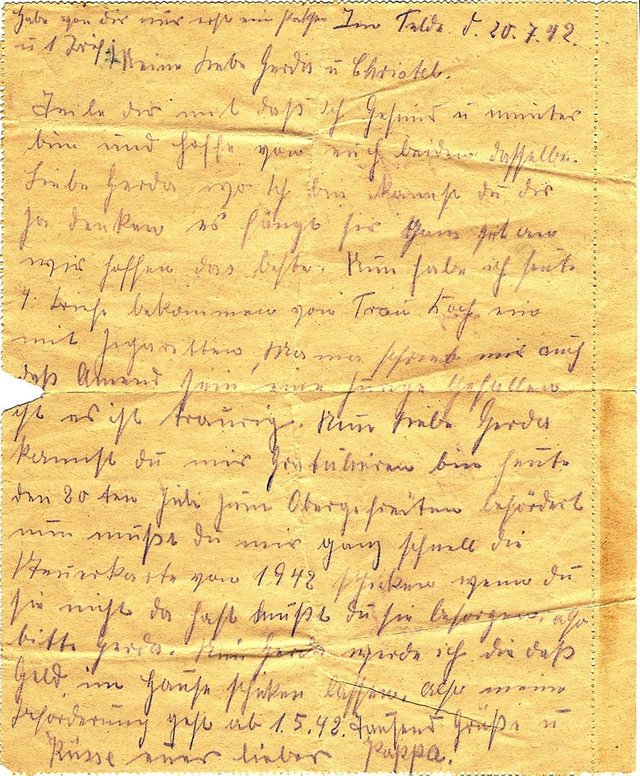 Habe von dir nur erst ein
Im Felde d 20.7.42.
u 1 Brief
Meine Liebe Gerda u Christel.
Teile dir mit daß ich Gesund u munter
bin und hoffe von euch beiden dasselbe.
Liebe Gerda wo ich bin kannst du dir
ja denken es fängt hir ganz gut an
wir hoffen das beste. Nun habe ich heute
4 briefe bekommen von Frau Koch ein
mit Zigaretten, Mama schrieb mir auch
daß Amend sein eine Junge Gefallen
ist es ist traurig. Nun Liebe Gerda
kannst du mir Gratulieren bin heute
den 20 ten Juli zum Obergefreiten befördert
nun mußt du mir ganz schnell die
Steuerkarte von 1942 schicken wenn du
sie nicht da hast mußt du sie besorgen, also
bitte Gerda. Nun Gerda werde ich die daß
Geld im Hause schiken lassen, also meine
Beforderung geht ab 1.5.42. Tausend Grüße u
Küsse euer lieber Pappa.